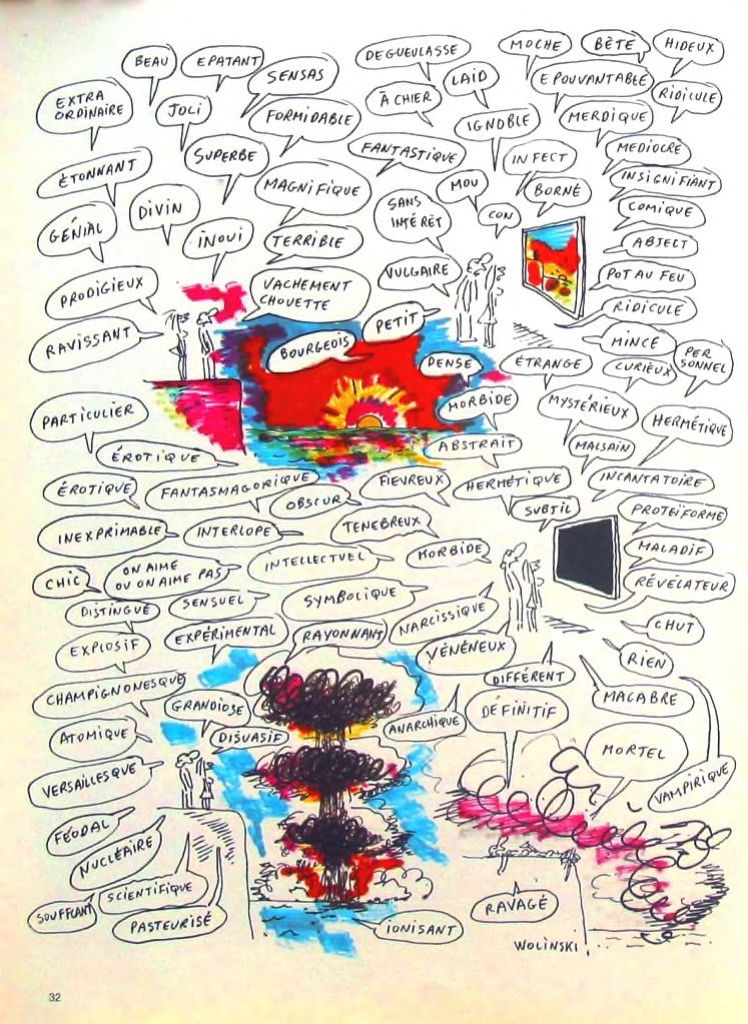 BEAU
EPATANT
SENSAS
EXTRA
ORDINAIRE
JOLI
FORMIDABLE
ÉTONNANT
SUPERBE
MAGNIFIQUE
GÉNIAL
DIVIN
INOUI
TERRIBLE
PRODIGIEUX
VACHEMENT
CHOUETTE
RAVISSANT
DEGUEULASSE
MOCHE
BÈTE
HIDEUX
À CHIER
LAID
EPOUVANTABLE
RIDICULE
IGNOBLE
MERDIQUE
FANTASTIQUE
INFECT
MEDIOCRE
MOU
BORNÉ
INSIGNIFIANT
SANS
INTÉRÊT
CON
COMIQUE
ABJECT
VULGAIRE
POT AU FEU
RIDICULE
PETIT
MINCE
BOURGEOIS
DENSE
ÉTRANGE
CURIEUX
PER
SONNEL
MORBIDE
MYSTÉRIEUX
HERMÉTIQUE
PARTICULIER
ABSTRAIT
MALSAIN
ÉROTIQUE
ÉROTIQUE
FANTASMAGORIQUE
FIEVREUX
HERMÉTIQUE
INCANTATOIRE
OBSCUR
SUBTIL
PROTÉIFORME
INEXPRIMABLE
INTERLOPE
TENEBREUX
MORBIDE
MALADIF
CHIC
ON AIME
OU ON AIME PAS
INTELLECTUEL
RÉVÉLATEUR
DISTINGUÉ
SENSUEL
SYMBOLIQUE
NARCISSIQUE
CHUT
EXPLOSIF
EXPÉRIMENTAL
RAYONNANT
VÉNÉNEUX
RIEN
CHAMPIGNONESQUE
DIFFÉRENT
MACABRE
GRANDIOSE
ANARCHIQUE
DÉFINITIF
ATOMIQUE
DISUASIF
MORTEL
VERSAILLESQUE
VAMPIRIQUE
FÉODAL
NUCLÉAIRE
SCIENTIFIQUE
SOUFFLANT
PASTEURISÉ
IONISANT
RAVAGÉ
WOLINSKI
32